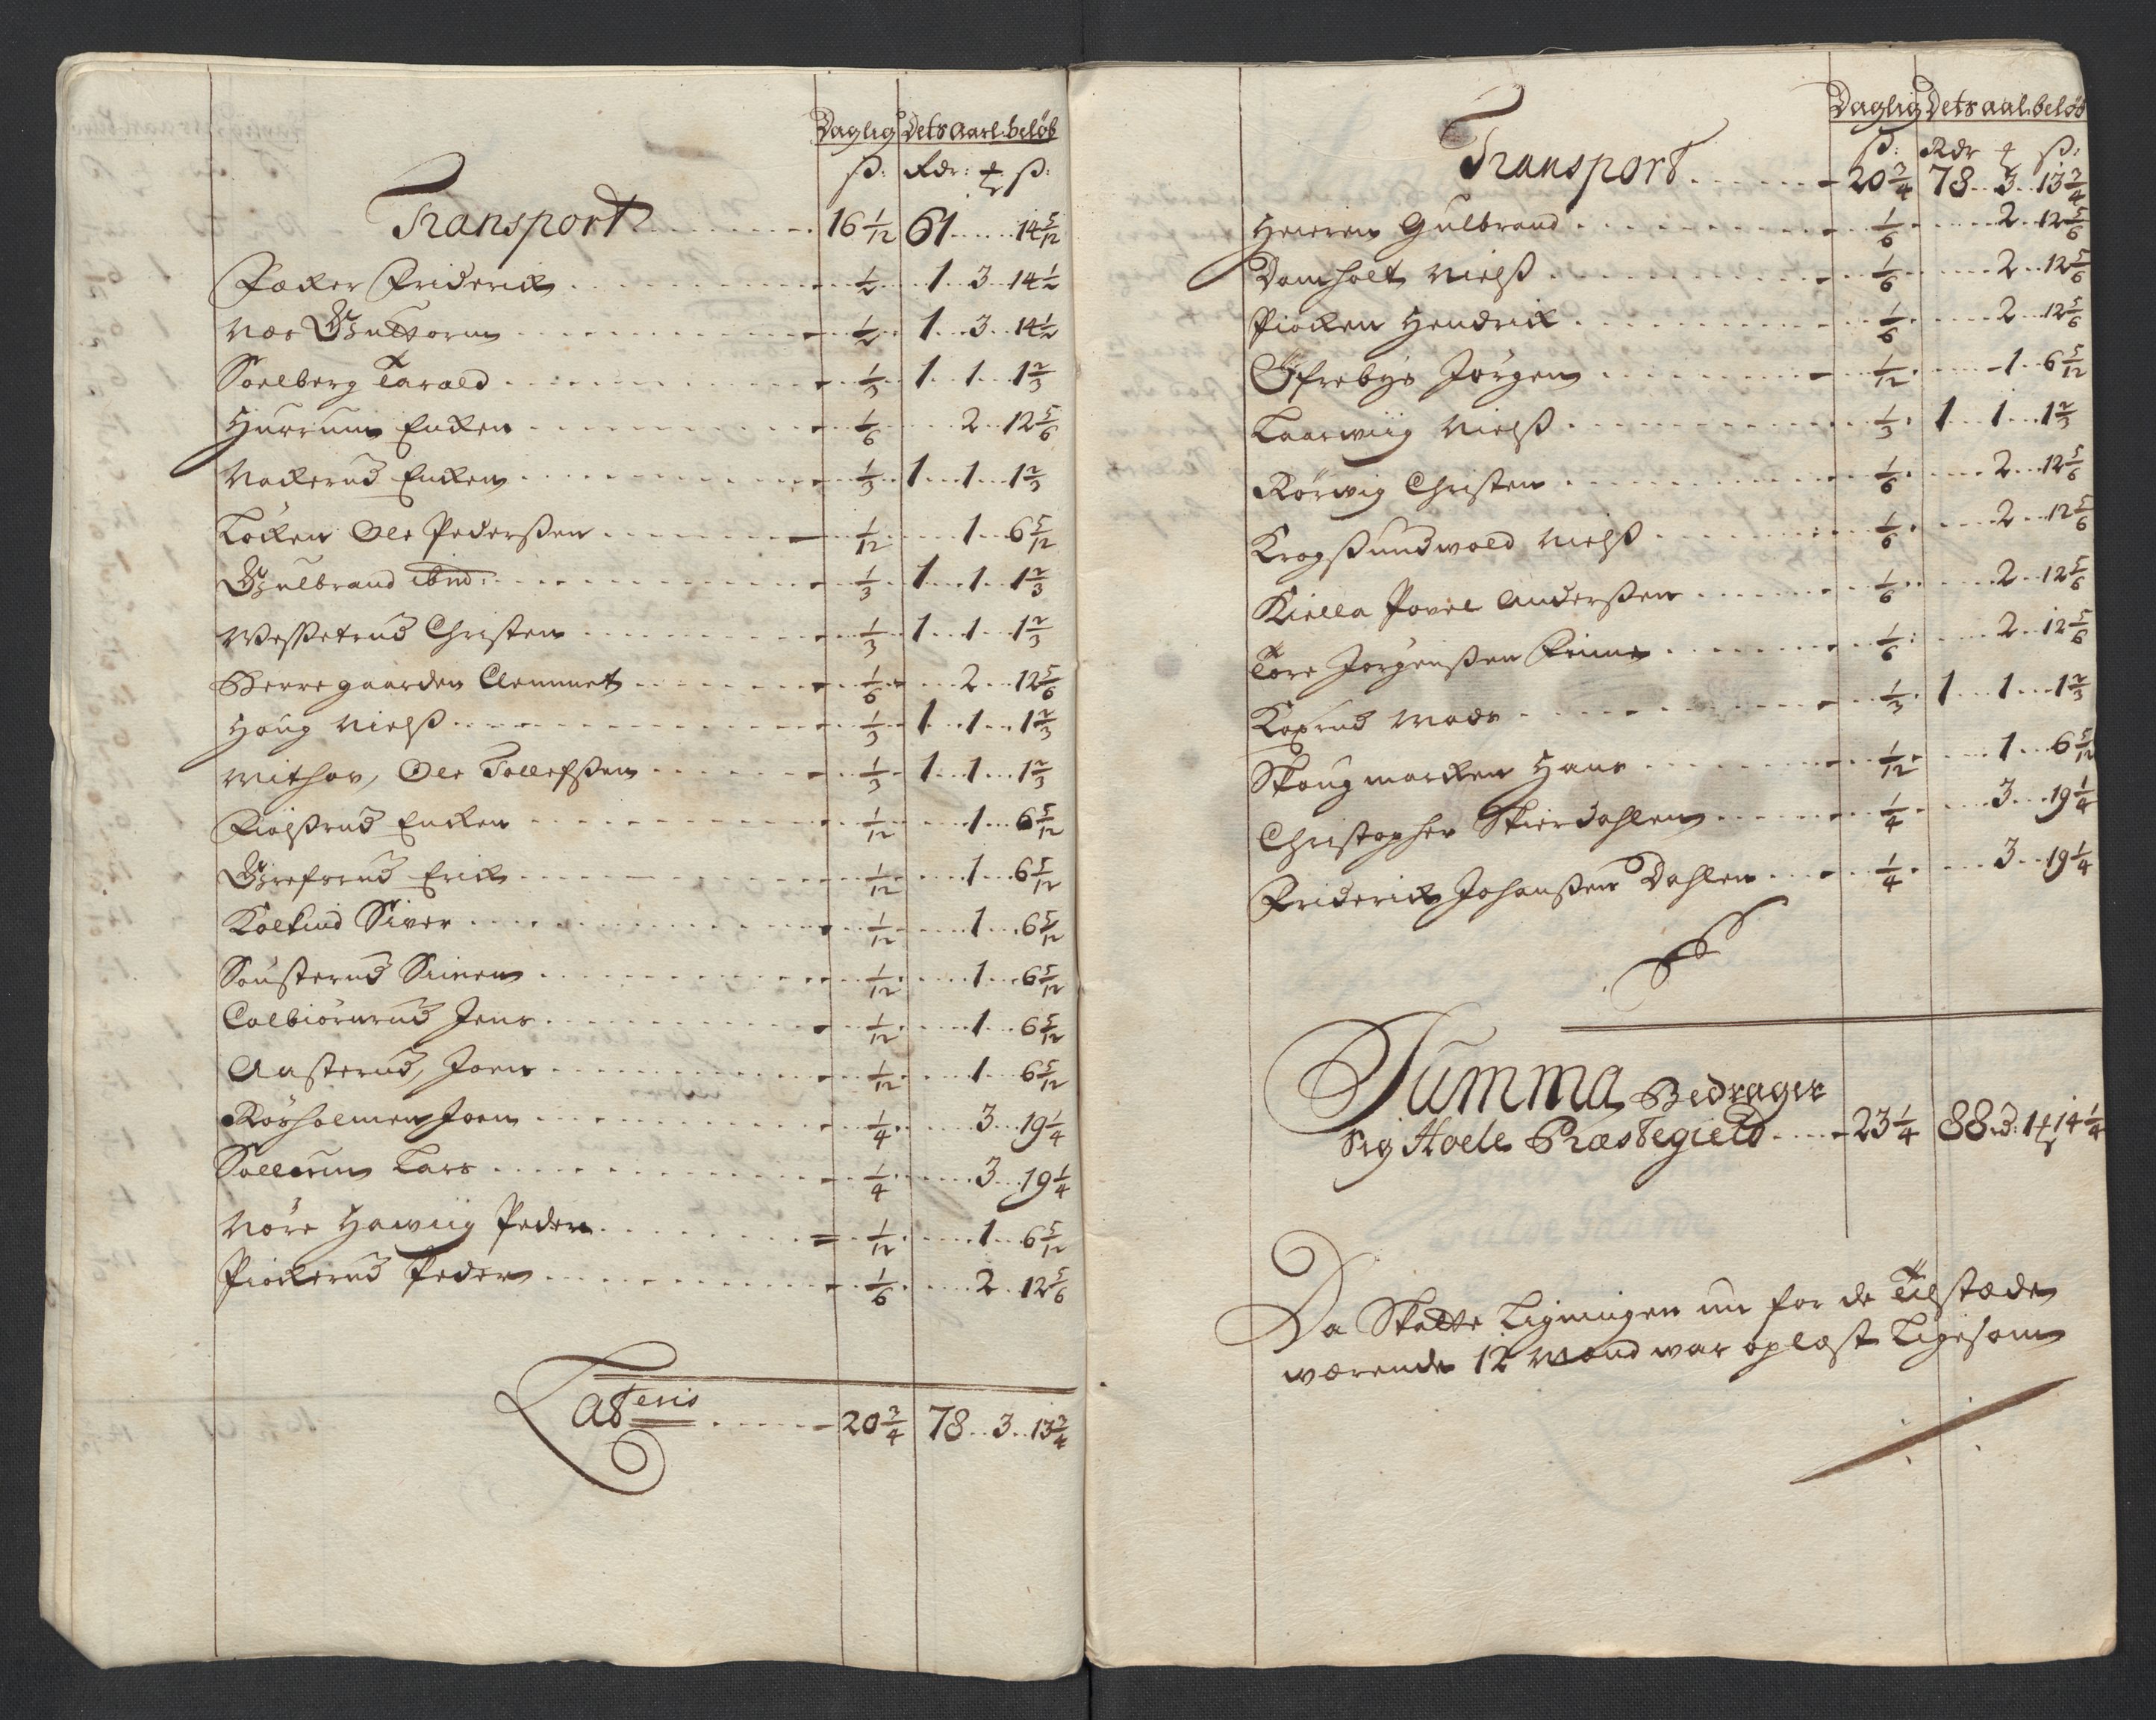 Daglig Dets aarl. beløb
ß: Rdr: ß:
Transport 16 1/12 61 14 5/12
Fæker Friderich 1/2 1 3 14 1/2
Næs Guttorm 1/2 1 3 14 1/2
Soelberg Tarald 1/3 1 1 1 2/3
Hurrum Encken 1/6 2 12 5/6
Nackerud Encken 1/3 1 1 1 2/3
Løcken Ole Pederßen 1/12 1 6 5/12
Gulbrand ibid: 1/3 1 1 1 2/3
Weßetrud Christen 1/3 1 1 1 2/3
Herregaarden Clemmet 1/6 2 12 5/6
Houg Nielß 1/3 1 1 1 2/3
Withov, Ole Tollefßen 1/3 1 1 1 2/3
Fiølßrud Encken 1/12 1 6 5/12
Grefsrud Erich 1/12 1 6 5/12
Siver 1/12 1 6 5/12
Sousterud Simen 1/12 1 6 5/12
Colbiørnrud Jens 1/12 1 6 5/12
Aasterud, Joen 1/12 1 6 5/12
Rørholmen Joen 1/4 3 19 1/4
Sollerum Lars 1/4 3 19 1/4
Nøre Hawiig Peder 1/12 1 6 5/12
Piockerud Peder 1/6 2 12 5/6
Lateris 20 3/4 78 3 13 3/4
Daglig Dets aal. beløb
ß: Rdr ß:
Transport 20 3/4 78 3 13 3/4
Heieren Gulbrand 1/6 2 12 5/6
Damholt Nielß 1/6 2 12 5/6
Piocken Hendrick 1/6 2 12 5/6
Øfrebye Jørgen 1/12 1 6 5/12
Laarwiig Nielß 1/3 1 1 1 2/3
Rørwig Christen 1/6 2 12 5/6
Krogßundwold Nielß 1/6 2 12 5/6
Kiella Povel Anderßen 1/6 2 12 5/6
Tore Jørgenßen Finne 1/6 2 12 5/6
Koxrud Mads 1/3 1 1 1 2/3
Skougmarcken Hans 1/12 1 6 5/12
Christopher Skierdahlen 1/4 3 19 1/4
Friderich Johanßen Dahlen 1/4 3 19 1/4
Summa Bedrager
sig Hoele Præstegield 23 1/4 88 1 14 1/4
Da Skatte Ligningen nu for de Tilstæde
wærende 12 Mænd war oplæst Ligesom